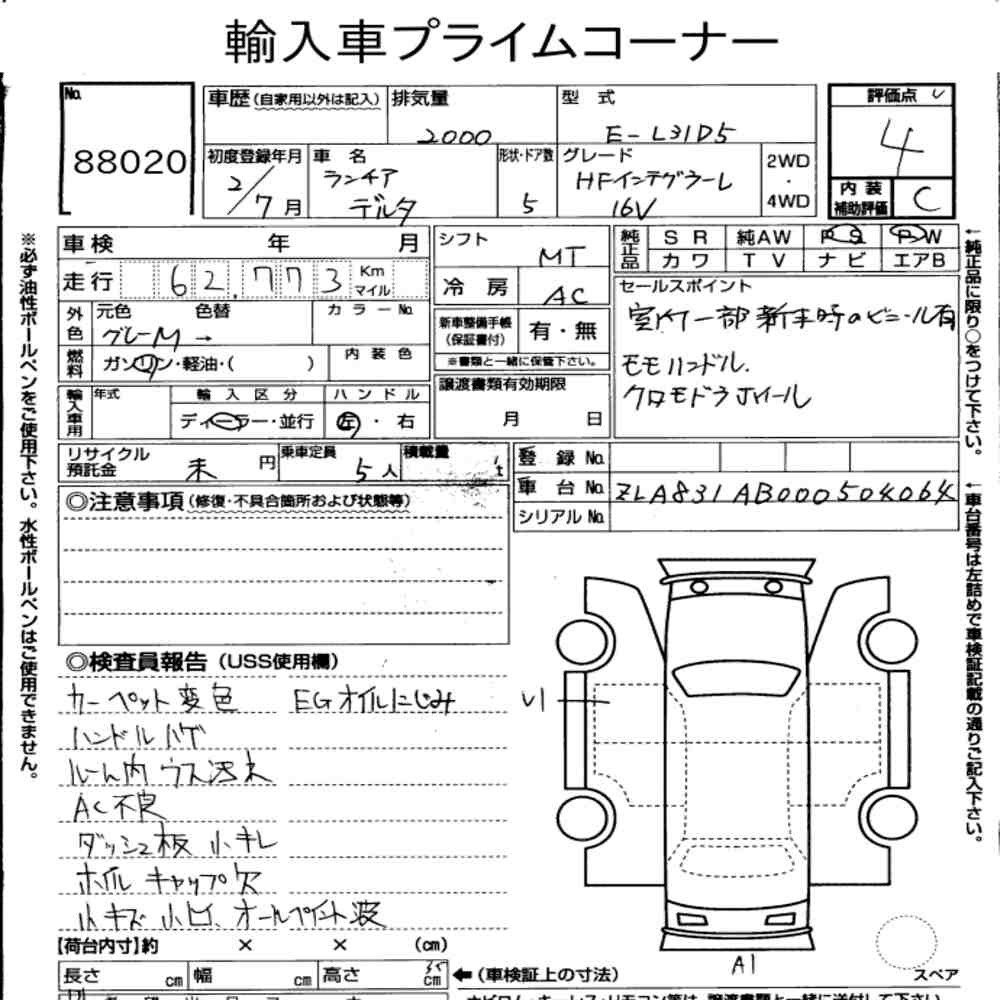 輸入車プライムコーナー
No. 88020
車歴(自家用以外は記入) 排気量 2000 型式 E-L31D5
評価点 4
内装補助評価 C
初度登録年月 2/7月
車名 ランチア デルタ
形状・ドア数 5
グレード HFインテグラーレ 16V
2WD・4WD
※必ず油性ボールペンをご使用下さい。水性ボールペンはご使用できません。
車検 年 月
走行 62,773 Km マイル
外色 元色 グレーM 色替 → カラーNo.
燃料 ガソリン・軽油・( ) 内装色
輸入車用 年式 輸入区分 ディーラー・並行 ハンドル 左・右
シフト MT
冷房 AC
新車整備手帳(保証書付) 有・無
※書類と一緒に保管下さい。
譲渡書類有効期限 月 日
純正品 SR 純AW PS PW
カワ TV ナビ エアB
セールスポイント
室内一部新車時のビニール有
モモハンドル.
クロモドラホイール
←純正品に限り○をつけて下さい。
リサイクル預託金 未 円 乗車定員 5人 積載量 t
登録No.
車台No. ZLA831AB000504064
シリアルNo.
←車台番号は左詰めで車検証記載の通りご記入下さい。
◎注意事項(修復・不具合箇所および状態等)
◎検査員報告(USS使用欄)
カーペット変色 EGオイルにじみ
ハンドルハゲ
ルーム内ウス汚れ
AC不良
ダッシュ板小キレ
ホイルキャップ欠
小キズ小凹、オールペイント波
U1
A1
スペア
【荷台内寸】約 × × (cm)
長さ cm 幅 cm 高さ cm ←(車検証上の寸法)